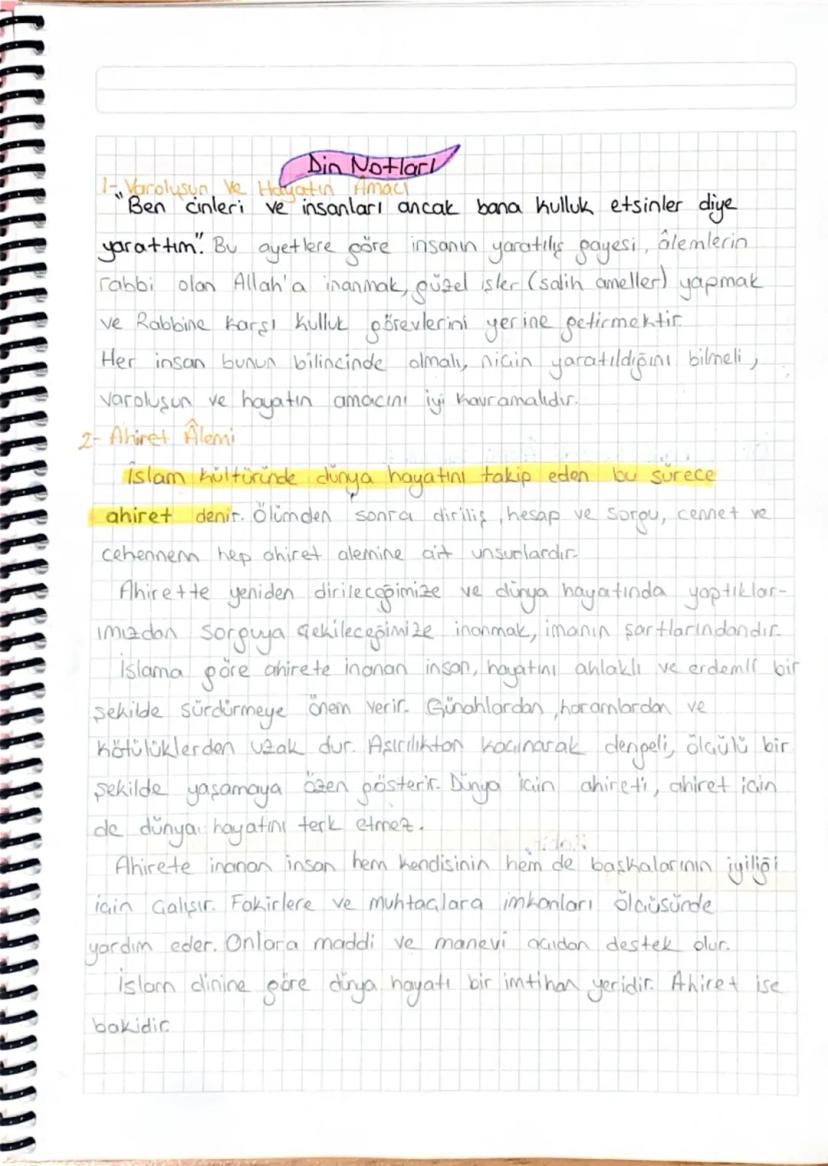 Din Notları
1- Varoluşun ve Hayatın Amacı
"Ben cinleri ve insanları ancak bana kulluk etsinler diye
yarattım". Bu ayetlere göre insanın yaratılış gayesi, âlemlerin
rabbi olan Allah'a inanmak, güzel işler (salih ameller) yapmak
ve Rabbine karşı kulluk görevlerini yerine getirmektir.
Her insan bunun bilincinde olmalı, niçin yaratıldığını bilmeli,
varoluşun ve hayatın amacını iyi kavramalıdır.
2- Ahiret Âlemi
İslam kültüründe dünya hayatını takip eden bu sürece
ahiret denir. Ölümden sonra diriliş, hesap ve sorgu, cennet ve
cehennem hep ahiret alemine ait unsurlardır.
Ahirette yeniden dirileceğimize ve dünya hayatında yaptıklar-
ımızdan sorguya çekileceğimize inanmak, imanın şartlarındandır.
İslama göre ahirete inanan insan, hayatını ahlaklı ve erdemli bir
şekilde sürdürmeye önem verir. Günahlardan, haramlardan ve
kötülüklerden uzak dur. Aşırılıktan kaçınarak dengeli, ölçülü bir
şekilde yaşamaya özen gösterir. Dünya için ahireti, ahiret için
de dünya hayatını terk etmez.
Ahirete inanan insan hem kendisinin hem de başkalarının iyiliği
için çalışır. Fakirlere ve muhtaçlara imkanları ölçüsünde
yardım eder. Onlara maddi ve manevi açıdan destek olur.
İslam dinine göre dünya hayatı bir imtihan yeridir. Ahiret ise
bakidir.